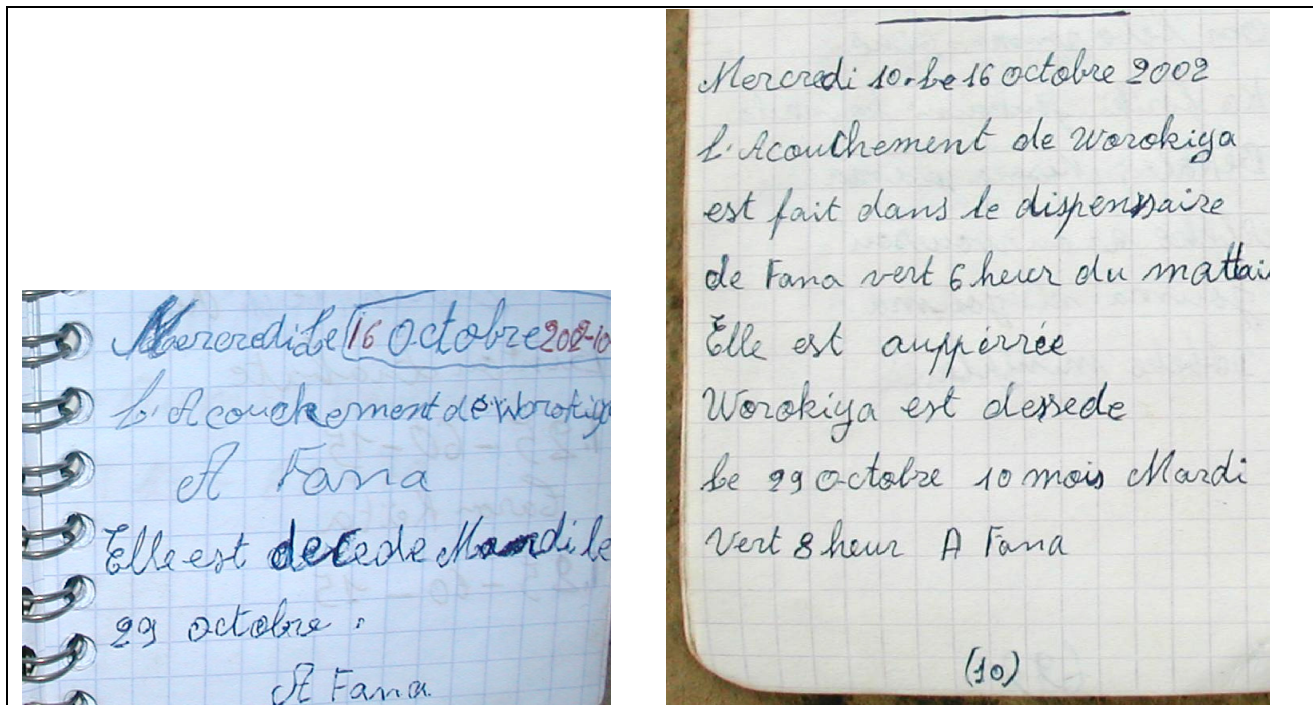 Mercredi Le 16 Octobre 202-10
L'Acouchement de Worokiya
A Fana
Elle est decede Mardi le
29 octobre.
A Fana
Mercredi 10. Le 16 octobre 2002
L'Acouchement de Worokiya
est fait dans le dispenssaire
de Fana vert 6 heur du mattai
Elle est auppérrée
Worokiya est dessede
Le 29 octobre 10 mois Mardi
Vert 8 heur A Fana
(10)